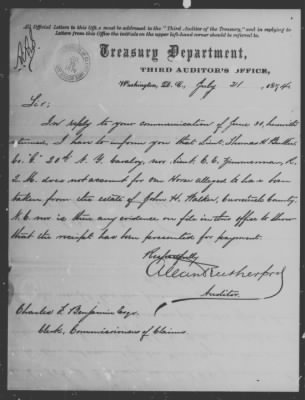 All Official Letters to this Office must be addressed to the "Third Auditor of the Treasury," and in replying to
Letters from this Office the initials on the upper left-hand corner should be referred to.
Treasury Department,
THIRD AUDITOR'S OFFICE,
Washington, D. C., July 21, 1874.
Sir:
In reply to your communication of June 30, herewith
returned, I have to inform you that Lieut. Thomas H. Butler
Co. "C" 20th N. Y. Cavalry, nor Lieut. C. C. Zimmerman, R.
Q. M. does not account for one Horse alleged to have been
taken from the estate of John H. Walker, Currituck County,
N. C. nor is there any evidence on file in this office to show
that the receipt has been presented for payment.
Respectfully
Allan Rutherford
Auditor.
Charles F. Benjamin Esqr.
Clerk, Commissioners of Claims.